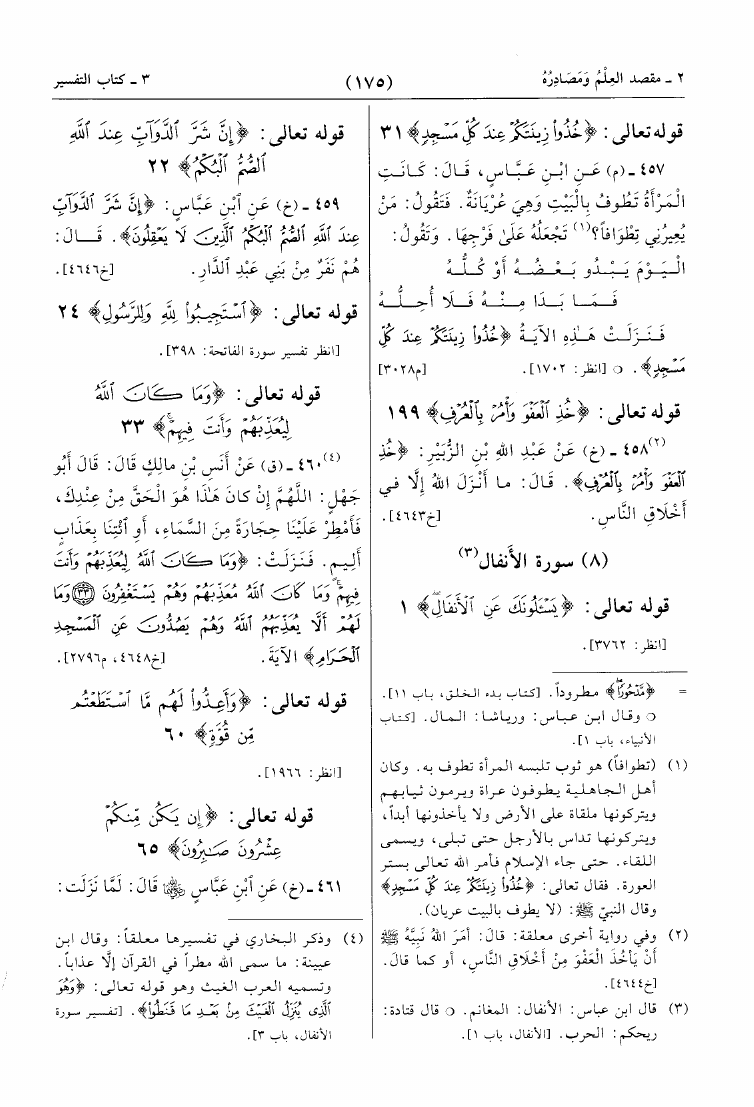 ٢ ـ مقصد العِلْمُ وَمَصَادِرُهُ
(١٧٥)
٣ ـ كتاب التفسير
قوله تعالى: ﴿خُذُوا۟ زِينَتَكُمْ عِندَ كُلِّ مَسْجِدٍ﴾ ٣١
٤٥٧ ـ (م) عَنِ ابْنِ عَبَّاسٍ، قَالَ: كَانَتِ
الْمَرْأَةُ تَطُوفُ بِالْبَيْتِ وَهِيَ عُرْيَانَةٌ. فَتَقُولُ: مَنْ
يُعِيرُنِي تِطْوَافاً؟(١) تَجْعَلُهُ عَلَىٰ فَرْجِهَا. وَتَقُولُ:
الْيَوْمَ يَبْدُو بَعْضُهُ أَوْ كُلُّهُ
فَمَا بَدَا مِنْهُ فَلَا أُحِلُّهُ
فَنَزَلَتْ هَـٰذِهِ الآيَةُ ﴿خُذُوا۟ زِينَتَكُمْ عِندَ كُلِّ
مَسْجِدٍ﴾. ○ [انظر: ١٧٠٢]. [م٣٠٢٨]
قوله تعالى: ﴿خُذِ ٱلْعَفْوَ وَأْمُرْ بِٱلْعُرْفِ﴾ ١٩٩
(٢)٤٥٨ ـ (خ) عَنْ عَبْدِ اللهِ بْنِ الزُّبَيْرِ: ﴿خُذِ
ٱلْعَفْوَ وَأْمُرْ بِٱلْعُرْفِ﴾. قَالَ: ما أَنْزَلَ اللهُ إِلَّا في
أَخْلَاقِ النَّاسِ. [خ٤٦٤٣].
(٨) سورة الأنفال(٣)
قوله تعالى: ﴿يَسْـَٔلُونَكَ عَنِ ٱلْأَنفَالِ﴾ ١
[انظر: ٣٧٦٢].
= ﴿مَّدْحُورًا﴾ مطروداً. [كتاب بدء الخلق، باب ١١].
○ وقال ابن عباس: ورياشا: المال. [كتاب
الأنبياء، باب ١].
(١) (تطوافاً) هو ثوب تلبسه المرأة تطوف به. وكان
أهل الجاهلية يطوفون عراة ويرمون ثيابهم
ويتركونها ملقاة على الأرض ولا يأخذونها أبداً،
ويتركونها تداس بالأرجل حتى تبلى، ويسمى
اللقاء. حتى جاء الإسلام فأمر الله تعالى بستر
العورة. فقال تعالى: ﴿خُذُوا۟ زِينَتَكُمْ عِندَ كُلِّ مَسْجِدٍ﴾
وقال النبيّ ﷺ: (لا يطوف بالبيت عريان).
(٢) وفي رواية أخرى معلقة: قالَ: أَمَرَ اللهُ نَبِيَّهُ ﷺ
أَنْ يَأْخُذَ الْعَفْوَ مِنْ أَخْلَاقِ النَّاسِ، أو كما قالَ.
[خ٤٦٤٤].
(٣) قال ابن عباس: الأنفال: المغانم. ○ قال قتادة:
ريحكم: الحرب. [الأنفال، باب ١].
قوله تعالى: ﴿إِنَّ شَرَّ ٱلدَّوَآبِّ عِندَ ٱللَّهِ
ٱلصُّمُّ ٱلْبُكْمُ﴾ ٢٢
٤٥٩ ـ (خ) عَنِ ابْنِ عَبَّاسٍ: ﴿إِنَّ شَرَّ ٱلدَّوَآبِّ
عِندَ ٱللَّهِ ٱلصُّمُّ ٱلْبُكْمُ ٱلَّذِينَ لَا يَعْقِلُونَ﴾. قَالَ:
هُمْ نَفَرٌ مِنْ بَنِي عَبْدِ الدَّارِ. [خ٤٦٤٦].
قوله تعالى: ﴿ٱسْتَجِيبُوا۟ لِلَّهِ وَلِلرَّسُولِ﴾ ٢٤
[انظر تفسير سورة الفاتحة: ٣٩٨].
قوله تعالى: ﴿وَمَا كَانَ ٱللَّهُ
لِيُعَذِّبَهُمْ وَأَنتَ فِيهِمْ﴾ ٣٣
(٤)٤٦٠ ـ (ق) عَنْ أَنَسِ بْنِ مالِكٍ قَالَ: قَالَ أَبُو
جَهْلٍ: اللَّهُمَّ إِنْ كانَ هَـٰذَا هُوَ الْحَقَّ مِنْ عِنْدِكَ،
فَأَمْطِرْ عَلَيْنَا حِجَارَةً مِنَ السَّمَاءِ، أَوِ ائْتِنَا بِعَذَابٍ
أَلِيمٍ. فَنَزَلَتْ: ﴿وَمَا كَانَ ٱللَّهُ لِيُعَذِّبَهُمْ وَأَنتَ
فِيهِمْ وَمَا كَانَ ٱللَّهُ مُعَذِّبَهُمْ وَهُمْ يَسْتَغْفِرُونَ ۝٣٣ وَمَا
لَهُمْ أَلَّا يُعَذِّبَهُمُ ٱللَّهُ وَهُمْ يَصُدُّونَ عَنِ ٱلْمَسْجِدِ
ٱلْحَرَامِ﴾ الآيَةَ. [خ٤٦٤٨، م٢٧٩٦].
قوله تعالى: ﴿وَأَعِدُّوا۟ لَهُم مَّا ٱسْتَطَعْتُم
مِّن قُوَّةٍ﴾ ٦٠
[انظر: ١٩٦٦].
قوله تعالى: ﴿إِن يَكُن مِّنكُمْ
عِشْرُونَ صَـٰبِرُونَ﴾ ٦٥
٤٦١ ـ (خ) عَنِ ابْنِ عَبَّاسٍ رضي الله عنهما قَالَ: لَمَّا نَزَلَت:
(٤) وذكر البخاري في تفسيرها معلقاً: وقال ابن
عيينة: ما سمى الله مطراً في القرآن إلَّا عذاباً.
وتسميه العرب الغيث وهو قوله تعالى: ﴿وَهُوَ
ٱلَّذِى يُنَزِّلُ ٱلْغَيْثَ مِنْ بَعْدِ مَا قَنَطُوا۟﴾. [تفسير سورة
الأنفال، باب ٣].